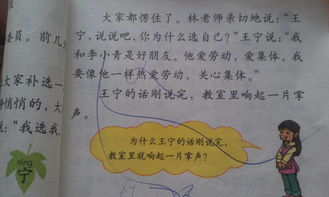 大家都愣住了。林老师亲切地说："王
宁，说说吧，你为什么选自己？"王宁说："我
和李小青是好朋友。他爱劳动、爱集体。我
要像他一样热爱劳动，关心集体。"
王宁的话刚说完，教室里响起一片掌
声。
委员。前几
大家补选一
静悄悄的，大
说："我选我
为什么王宁的话刚说完，
教室里就响起一片掌声？
níng
宁